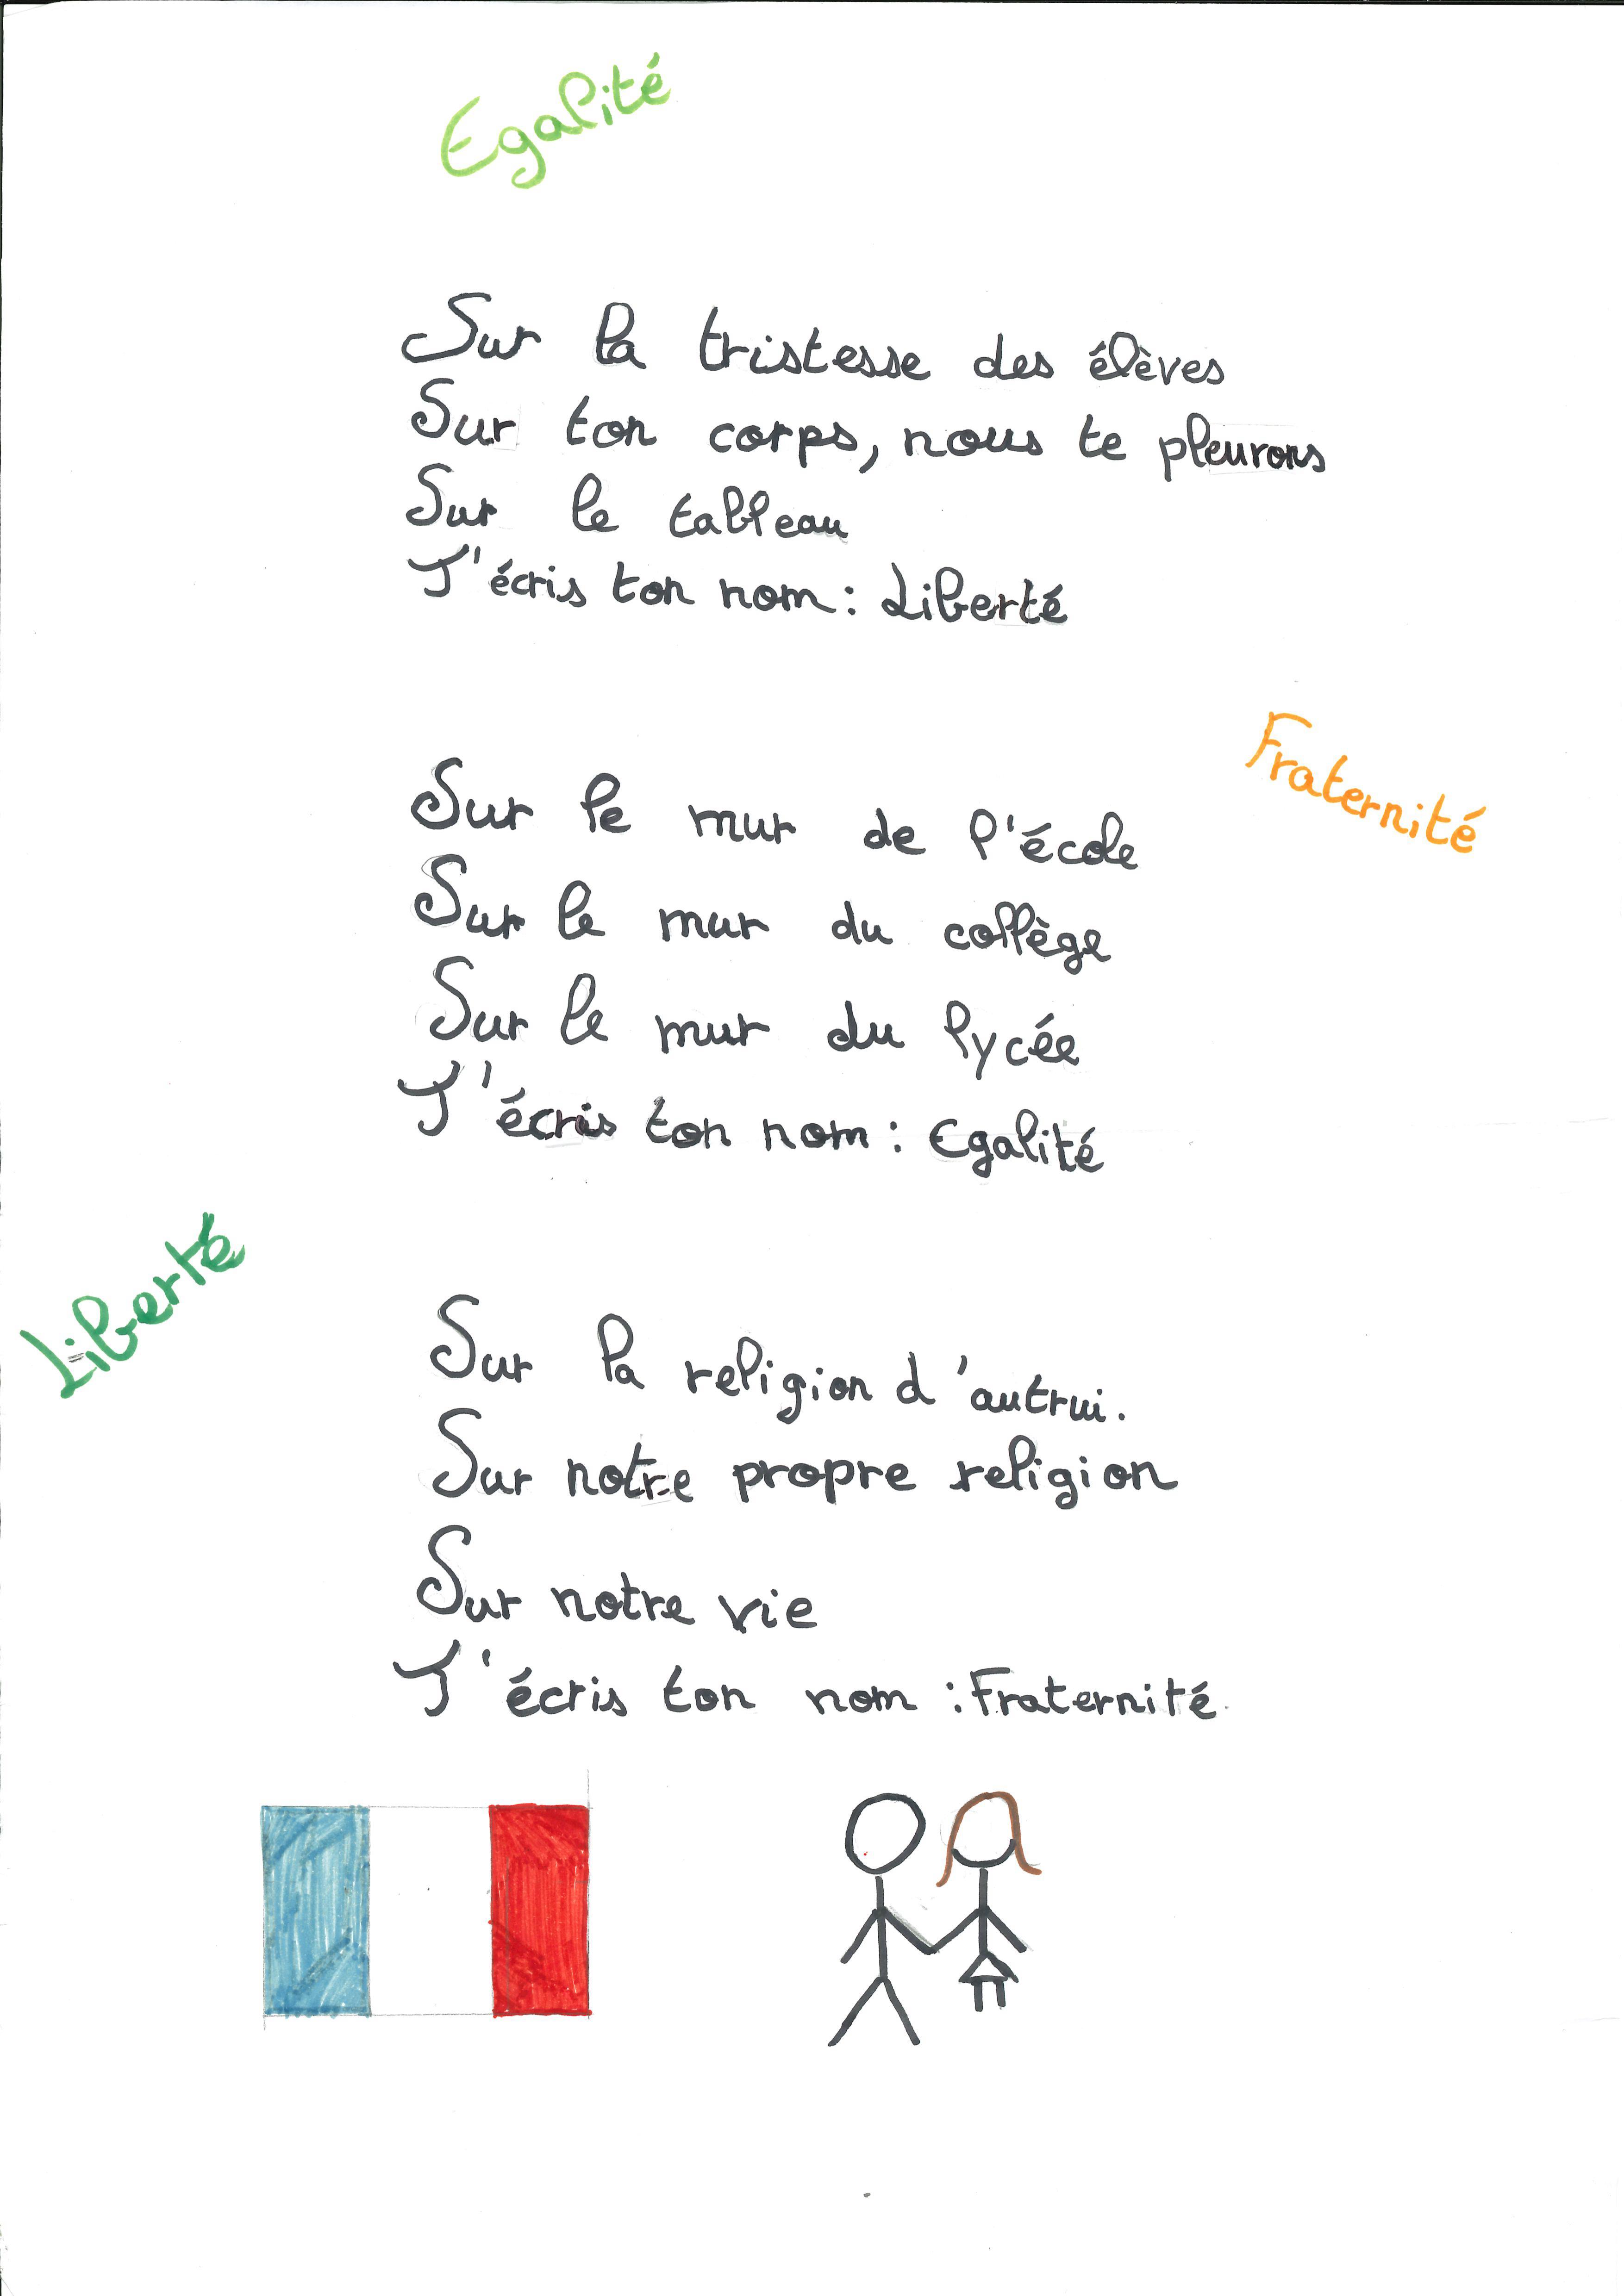 Egalité
Sur la tristesse des élèves
Sur ton corps, nous te pleurons
Sur le tableau
J'écris ton nom : Liberté
Fraternité
Sur le mur de l'école
Sur le mur du collège
Sur le mur du lycée
J'écris ton nom : Egalité
Liberté
Sur la religion d'autrui.
Sur notre propre religion
Sur notre vie
J'écris ton nom : Fraternité